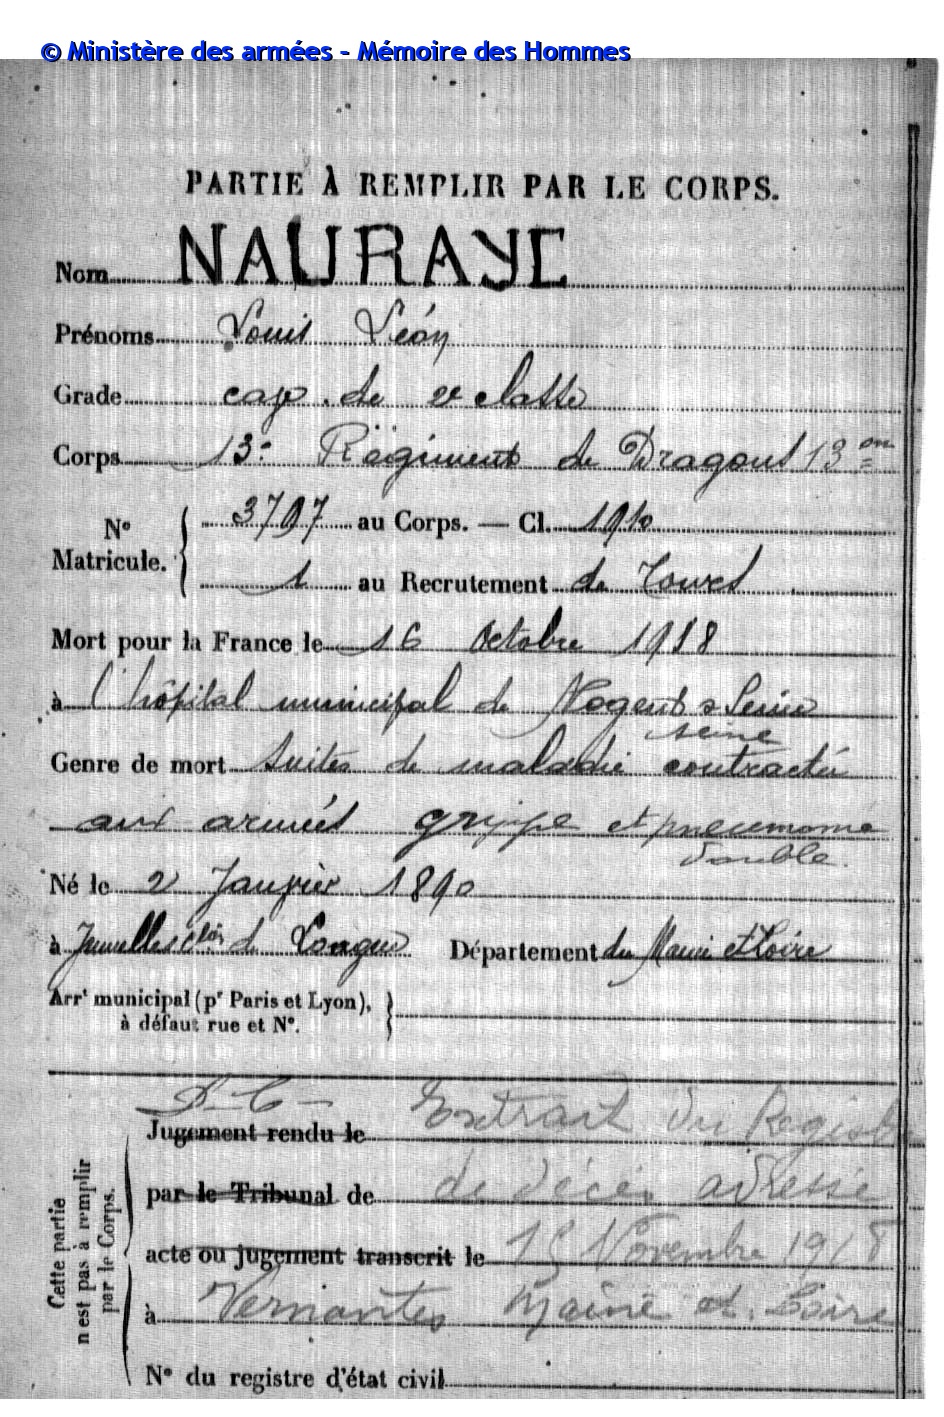 © Ministère des armées - Mémoire des Hommes
PARTIE À REMPLIR PAR LE CORPS.
Nom NAURAYE
Prénoms Louis Léon
Grade cav. de 2e classe
Corps 13e Régiment de Dragons 13
N° Matricule. 3797 au Corps. — Cl. 1910
1 au Recrutement de Tours
Mort pour la France le 16 Octobre 1918
à l'hôpital municipal de Nogent s Seine
seine
Genre de mort Suites de maladie contractée
aux armées grippe et pneumonie
double.
Né le 2 Janvier 1890
à Jumelles cton de Longué Département du Maine et Loire
Arrt municipal (pr Paris et Lyon),
à défaut rue et N°.
Cette partie
n'est pas à remplir
par le Corps.
Jugement rendu le Extrait du Registre
par le Tribunal de de décès adressé
acte ou jugement transcrit le 15 Novembre 1918
à Vernantes Maine et Loire
N° du registre d'état civil